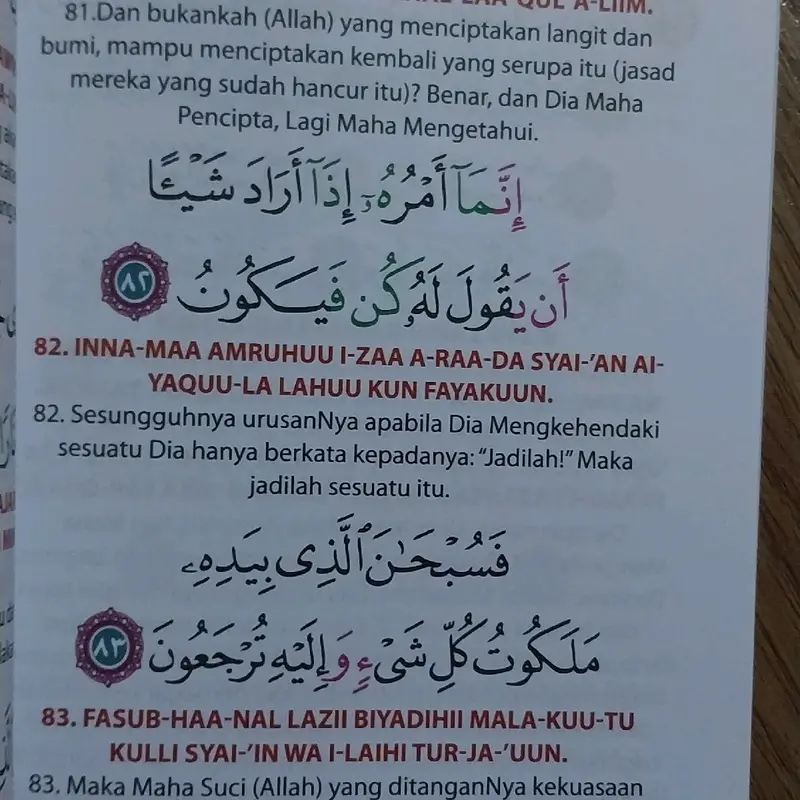 81.Dan bukankah (Allah) yang menciptakan langit dan
bumi, mampu menciptakan kembali yang serupa itu (jasad
mereka yang sudah hancur itu)? Benar, dan Dia Maha
Pencipta, Lagi Maha Mengetahui.
إِنَّمَآ أَمْرُهُۥٓ إِذَآ أَرَادَ شَيْـًٔا
أَن يَقُولَ لَهُۥ كُن فَيَكُونُ ٨٢
82. INNA-MAA AMRUHUU I-ZAA A-RAA-DA SYAI-’AN AI-
YAQUU-LA LAHUU KUN FAYAKUUN.
82. Sesungguhnya urusanNya apabila Dia Mengkehendaki
sesuatu Dia hanya berkata kepadanya: “Jadilah!” Maka
jadilah sesuatu itu.
فَسُبْحَـٰنَ ٱلَّذِى بِيَدِهِۦ
مَلَكُوتُ كُلِّ شَىْءٍ وَإِلَيْهِ تُرْجَعُونَ ٨٣
83. FASUB-HAA-NAL LAZII BIYADIHII MALA-KUU-TU
KULLI SYAI-’IN WA I-LAIHI TUR-JA-’UUN.
83. Maka Maha Suci (Allah) yang ditanganNya kekuasaan